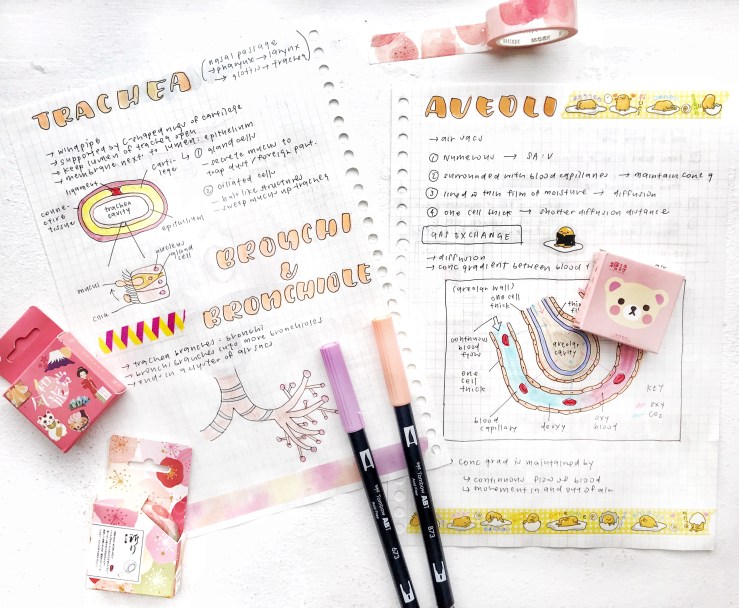 TRACHEA
(nasal passage
→ pharynx → larynx
→ glottis → trachea)
→ windpipe
→ supported by C-shaped rings of cartilage
→ keep lumen of trachea open
→ membrane next to lumen: epithelium
↳ ① gland cells
→ secrete mucus to
trap dust / foreign part.
② ciliated cells
→ hair like structures
→ sweep mucus up trachea
ligament
carti-
lage
conne-
ctive
tissue
trachea
cavity
epithelium
nucleus
gland
cell
mucus
cilia
BRONCHI
&
BRONCHIOLE
→ trachea branches → bronchi
→ bronchi branches into more bronchioles
→ end in a cluster of air sacs
AVEOLI
→ air sacs
① Numerous → SA:V
② surrounded with blood capillaries → maintain conc g
③ lined w thin film of moisture → diffusion
④ one cell thick → shorter diffusion distance
GAS EXCHANGE
→ diffusion
→ conc gradient between blood
(alveolar wall)
one cell
thick
thin
continuous
blood
flow
alveolar
cavity
one
cell
thick
KEY
oxy
CO2
blood
capillary
deoxy
oxy
blood
→ conc grad is maintained by
↳ continuous flow of blood
↳ movement in and out of air
Tombow ABT
673
Tombow ABT
873